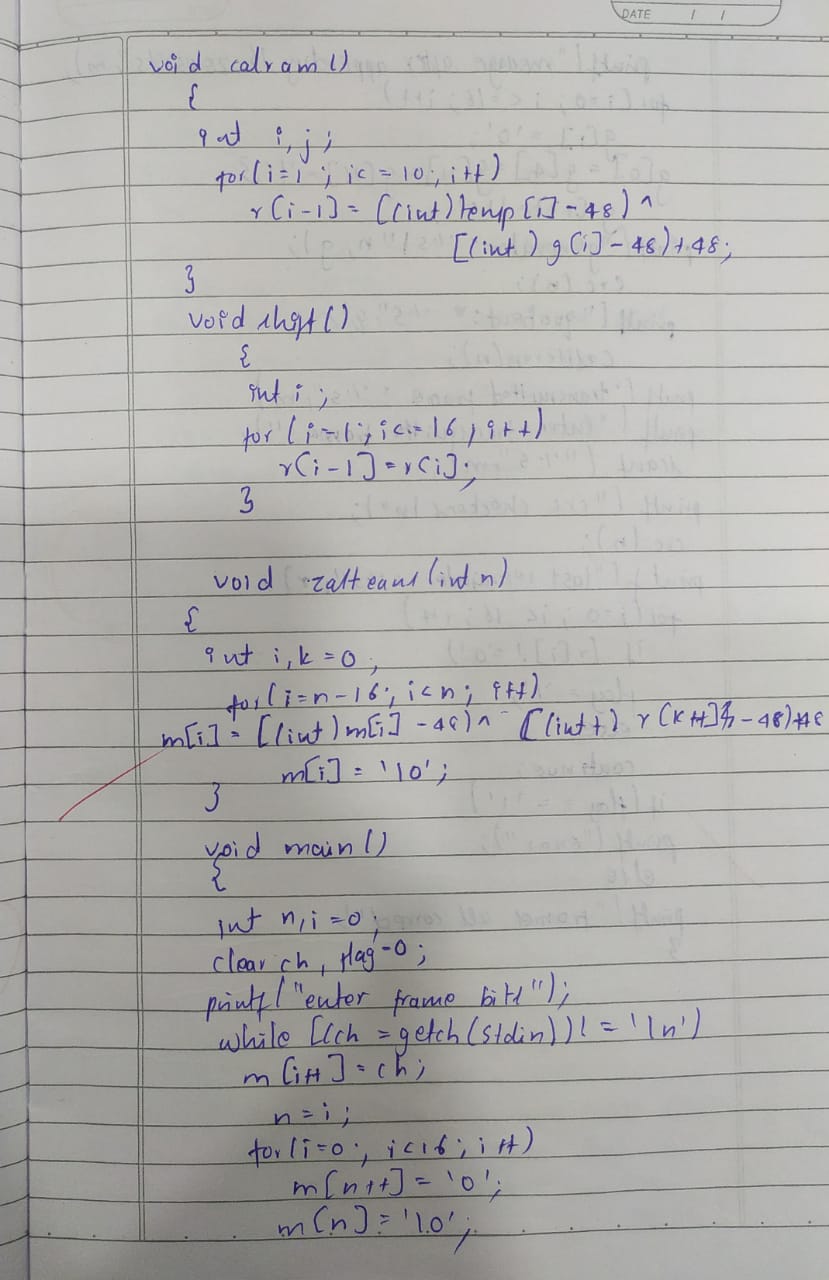 DATE / /
void calram()
{
int i, j;
for(i=1; i<=10; i++)
r(i-1]=[(int)temp[i]-48)^
[(int) g(i]-48)+48;
}
void shift()
{
int i;
for (i=1; i<=16; i++)
r(i-1]=r(i];
}
void caltrans(int n)
{
int i, k=0;
for(i=n-16; i<n; i++)
m[i] = [(int)m[i] -48)^ [(int+) r(k++]-48)+48
m[i] = '10';
}
void main()
{
int n, i=0;
clear ch, flag=0;
printf("enter frame bits");
while [(ch =getch(stdin))! = '\n')
m[i++] = ch;
n=i;
for(i=0; i<16; i++)
m[n++] = '0';
m(n] = '10';